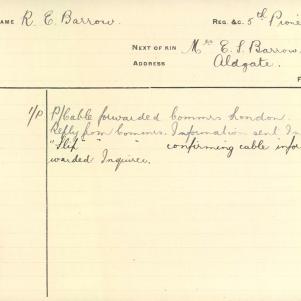 NAME R. E. Barrow. REG. &C. 5th Pione
NEXT OF KIN Mrs E. S. Barrow
ADDRESS Aldgate.
F
1/P P/Cable forwarded Commrs London.
Reply from Commrs. Information sent In
"Slip " " confirming cable infor
warded Inquiree.